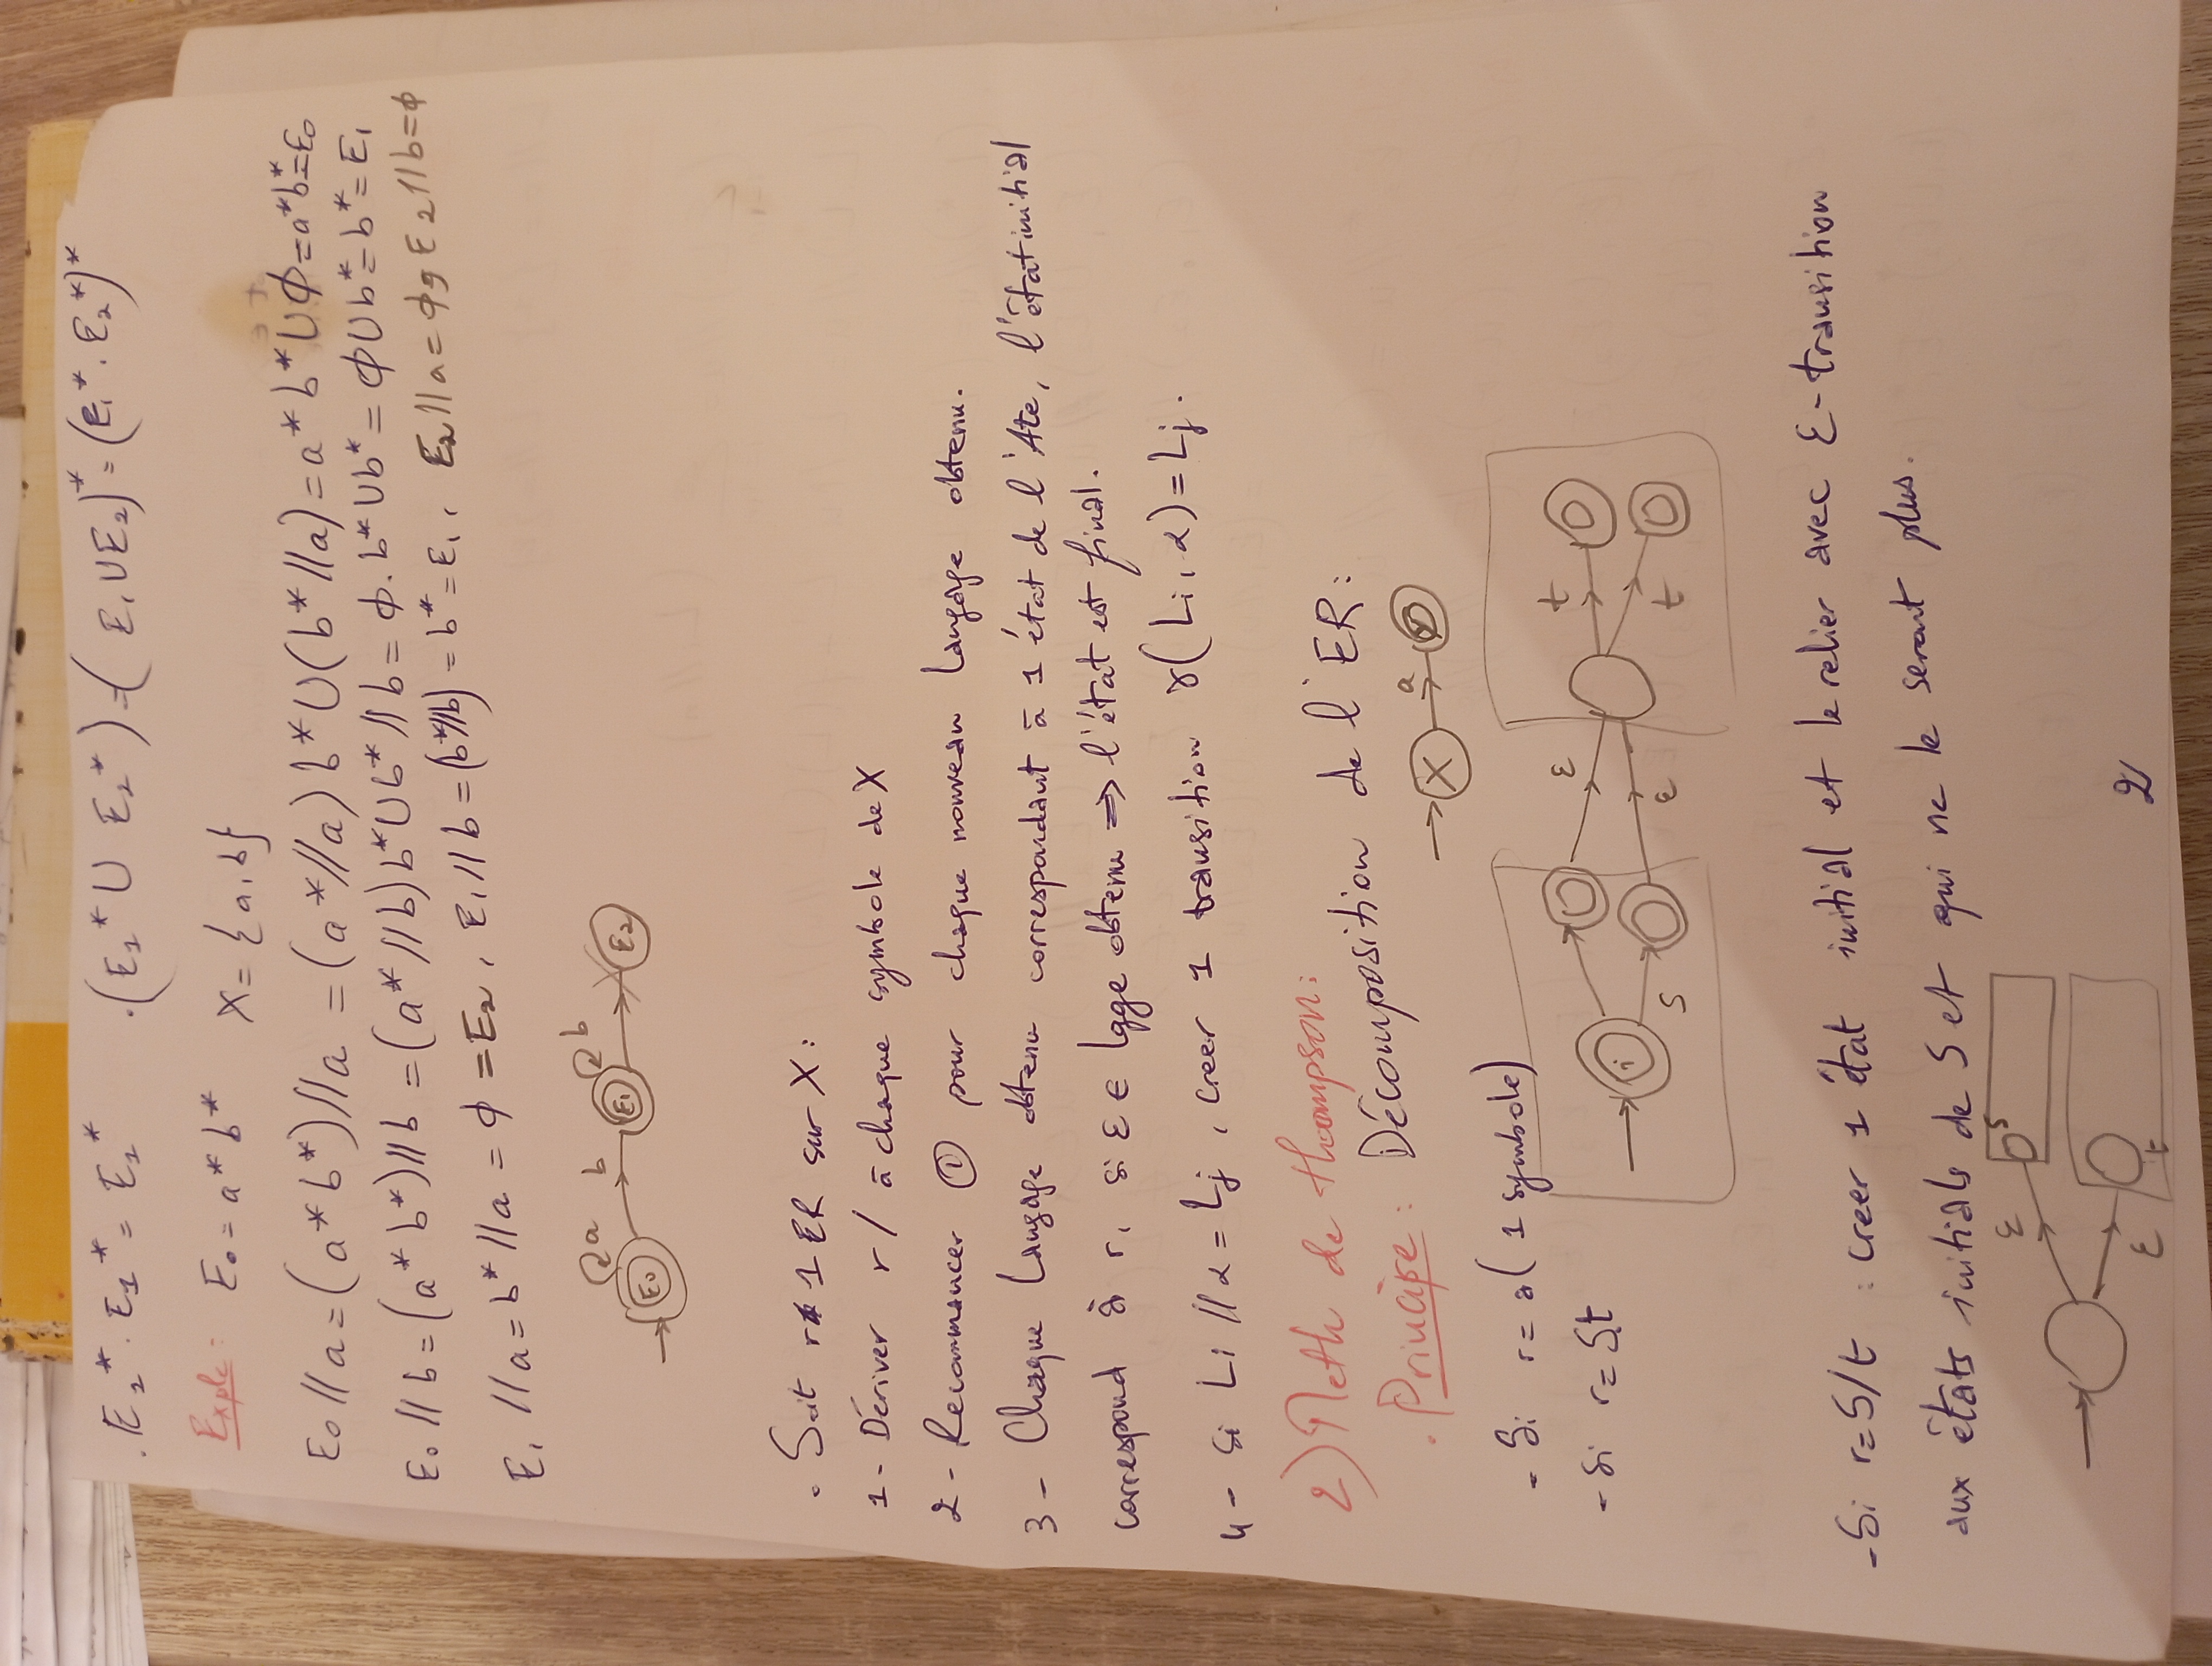 . E₁* . E₁* = E₁*    . (E₁* ∪ E₂*) = (E₁ ∪ E₂)* = (E₁* . E₂*)*
Exple : E₀ = a* b*    X = {a, b}
E₀ // a = (a* b*) // a = (a* // a) b* ∪ (b* // a) = a* b* ∪ ϕ = a* b* = E₀
E₀ // b = (a* b*) // b = (a* // b) b* ∪ b* // b = ϕ . b* ∪ b* = ϕ ∪ b* = b* = E₁
E₁ // a = b* // a = ϕ = E₂, E₁ // b = (b* // b) = b* = E₁, E₂ // a = ϕ, E₂ // b = ϕ
a b b
E₀ E₁ E₂
. Soit r 1 ER sur X :
1 - Dériver r / à chaque symbole de X
2 - Recommancer ① pour chaque nouveau Langage obtenu.
3 - Chaque Langage obtenu correspondant à 1 état de l'Ate, l'état initial
correspond à r, si ε ∈ lgge obtenu => l'état est final.
4 - Si Li // α = Lj, creer 1 transition γ(Li, α) = Lj.
2) Meth de thompson :
. Principe : Décomposition de l'ER :
X a
- Si r = a (1 symbole)
- Si r = S.t
i S ε ε t t
- Si r = S/t : creer 1 état initial et le relier avec ε-transition
aux états initials de S et qui ne le seront plus.
ε S
ε t
2